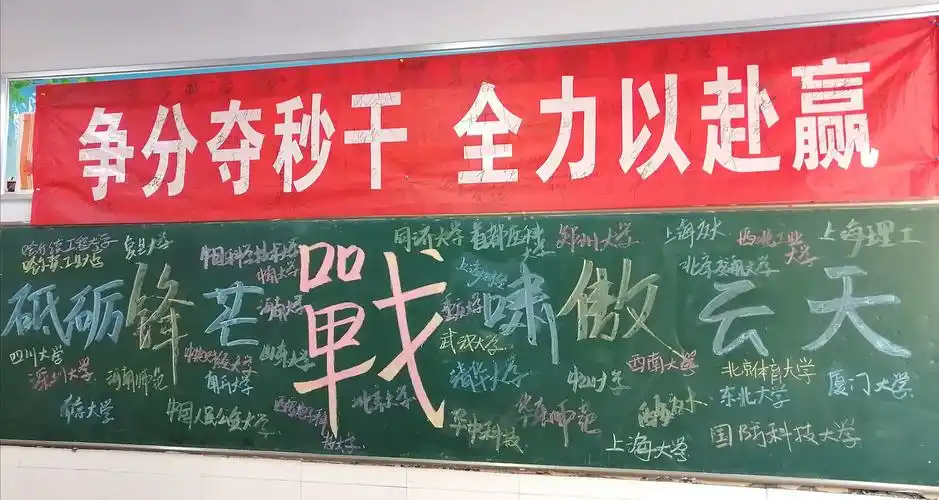 争分夺秒干 全力以赴赢
哈尔滨工程大学 复旦大学 中国科学技术大学 同济大学 首都医科大学 郑州大学 上海交大 西北工业大学 上海理工
哈尔滨工业大学 北京交通大学
砥砺锋芒 戰 啸傲云天
武汉大学
四川大学 山东大学 清华大学 中山大学 西南大学 北京体育大学 厦门大学
深圳大学 河南师范 北京大学 东北大学
中国人民公安大学 华中科技 华东师范 上海大学 国防科技大学